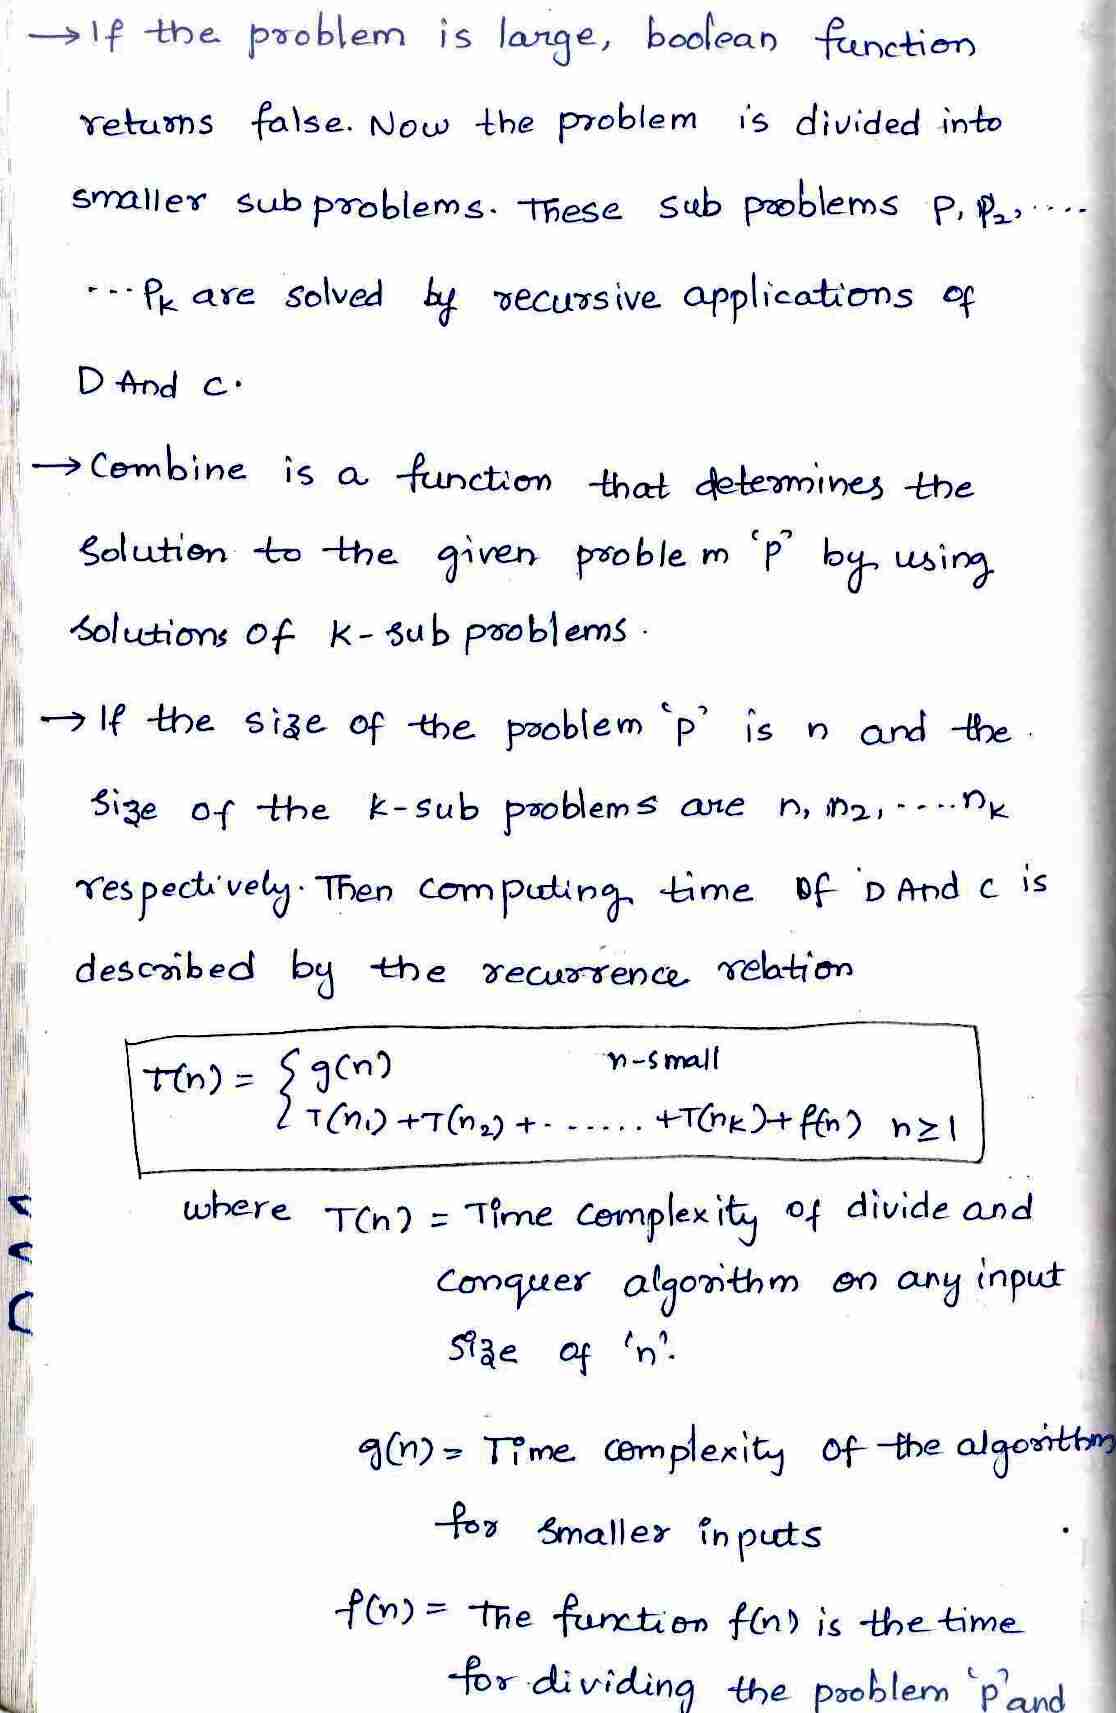 → If the problem is large, boolean function
returns false. Now the problem is divided into
smaller sub problems. These sub problems P1, P2, ....
... Pk are solved by recursive applications of
D And C.
→ Combine is a function that determines the
solution to the given problem 'p' by using
solutions of k-sub problems.
→ If the size of the problem 'p' is n and the
size of the k-sub problems are n1, n2, ....nk
respectively. Then computing time of D And C is
described by the recurrence relation
T(n) = { g(n) n-small
T(n1)+T(n2)+.......+T(nk)+f(n) n≥1
where T(n) = Time complexity of divide and
conquer algorithm on any input
size of 'n'.
g(n) = Time complexity of the algorithm
for smaller inputs
f(n) = The function f(n) is the time
for dividing the problem 'p' and